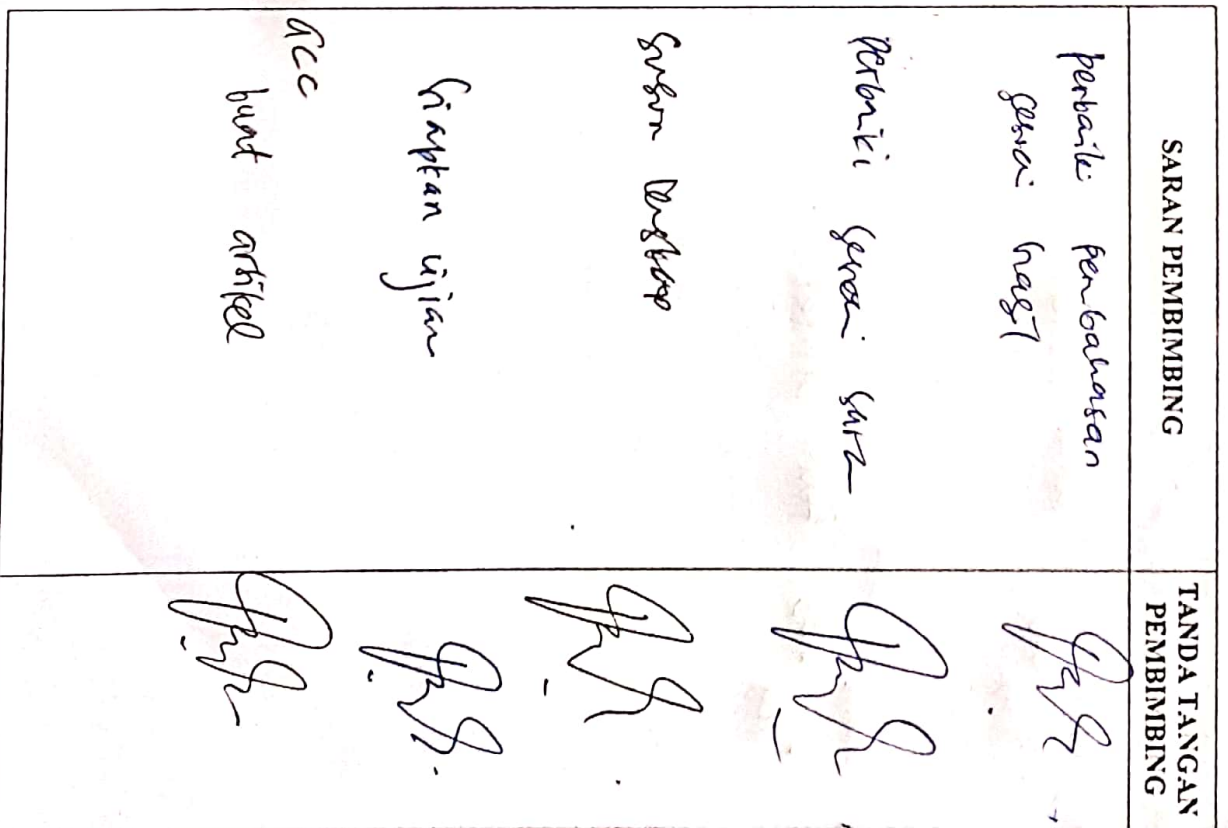 SARAN PEMBIMBING
TANDA TANGAN
PEMBIMBING
perbaiki pembahasan
sesuai hasil
perbaiki sesuai
susun lengkap
siapkan ujian
acc
buat artikel